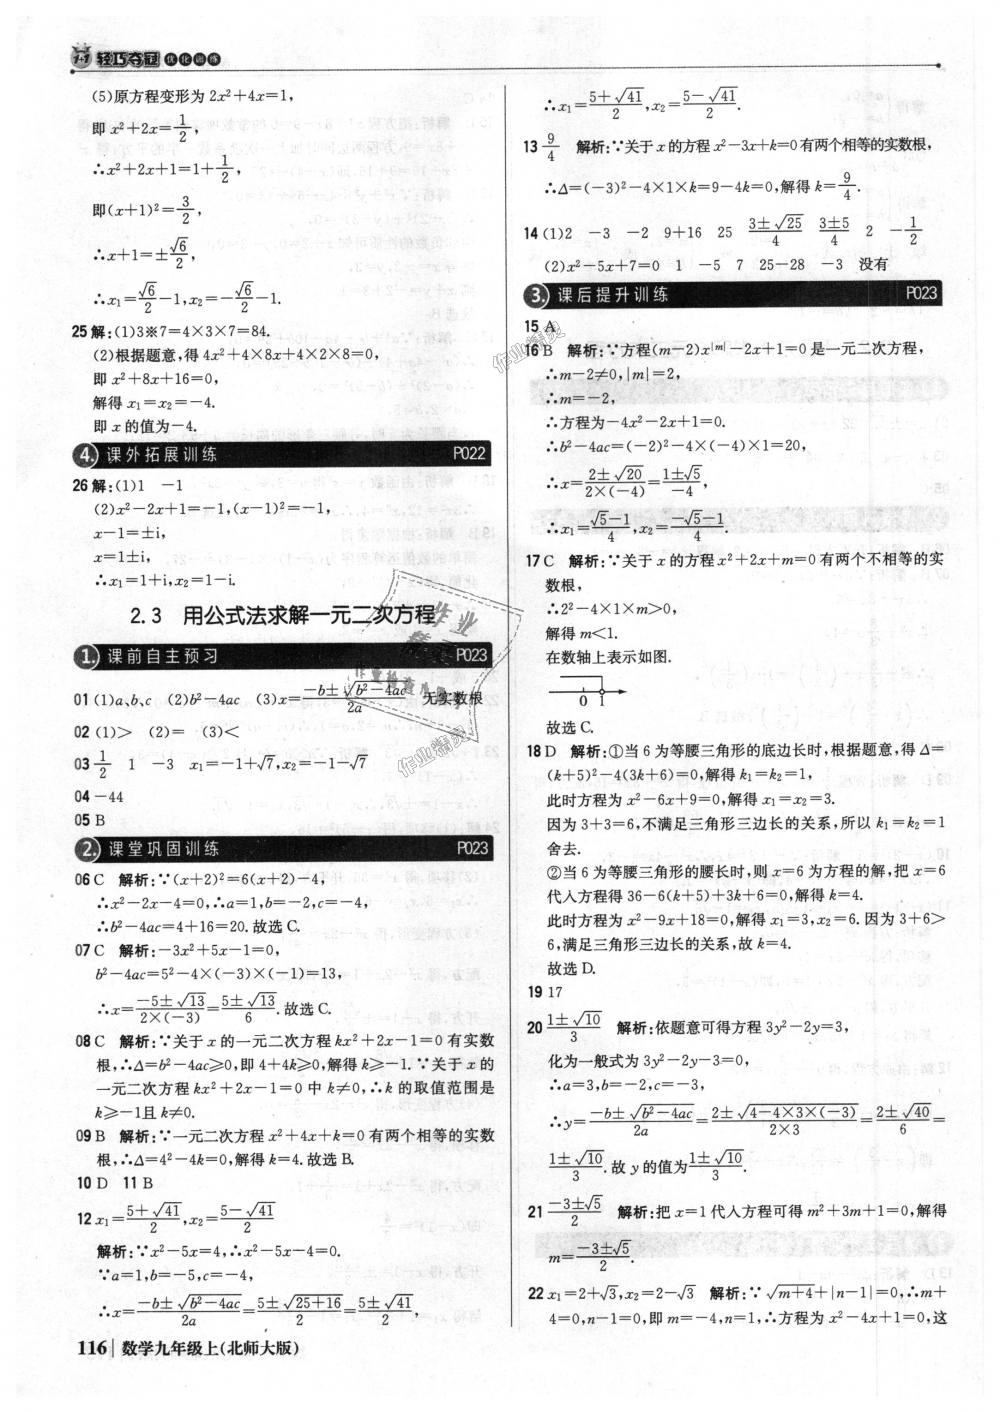 轻巧夺冠 优化训练
(5)原方程变形为 2x²+4x=1,
即 x²+2x=1/2,
∴x²+2x+1=1+1/2,
即(x+1)²=3/2,
∴x+1=±√6/2,
∴x₁=√6/2-1,x₂=-√6/2-1.
25 解:(1)3※7=4×3×7=84.
(2)根据题意,得 4x²+4×8x+4×2×8=0,
即 x²+8x+16=0,
解得 x₁=x₂=-4.
即 x 的值为-4.
4. 课外拓展训练 P022
26 解:(1)1 -1
(2)x²-2x+1=-1,(x-1)²=-1,
x-1=±i,
x=1±i,
∴x₁=1+i,x₂=1-i.
2.3 用公式法求解一元二次方程
1. 课前自主预习 P023
01 (1)a,b,c (2)b²-4ac (3)x=(-b±√(b²-4ac))/2a 无实数根
02 (1)> (2)= (3)<
03 1/2 1 -3 x₁=-1+√7,x₂=-1-√7
04 -44
05 B
2. 课堂巩固训练 P023
06 C 解析:∵(x+2)²=6(x+2)-4,
∴x²-2x-4=0,∴a=1,b=-2,c=-4,
∴b²-4ac=4+16=20.故选C.
07 C 解析:-3x²+5x-1=0,
b²-4ac=5²-4×(-3)×(-1)=13,
∴x=(-5±√13)/(2×(-3))=(5±√13)/6.故选C.
08 C 解析:∵关于 x 的一元二次方程 kx²+2x-1=0 有实数
根,∴Δ=b²-4ac≥0,即 4+4k≥0,解得 k≥-1.∵关于 x 的
一元二次方程 kx²+2x-1=0 中 k≠0,∴k 的取值范围是
k≥-1且 k≠0.
09 B 解析:∵一元二次方程 x²+4x+k=0 有两个相等的实数
根,∴Δ=4²-4k=0,解得 k=4.故选 B.
10 D 11 B
12 x₁=(5+√41)/2,x₂=(5-√41)/2
解析:∵x²-5x=4,∴x²-5x-4=0.
∵a=1,b=-5,c=-4,
∴x=(-b±√(b²-4ac))/2a=(5±√(25+16))/2=(5±√41)/2,
∴x₁=(5+√41)/2,x₂=(5-√41)/2.
13 9/4 解析:∵关于 x 的方程 x²-3x+k=0有两个相等的实数根,
∴Δ=(-3)²-4×1×k=9-4k=0,解得 k=9/4.
14 (1)2 -3 -2 9+16 25 (3±√25)/4 (3±5)/4 2 -1/2
(2)x²-5x+7=0 1 -5 7 25-28 -3 没有
3. 课后提升训练 P023
15 A
16 B 解析:∵方程(m-2)x^|m|-2x+1=0 是一元二次方程,
∴m-2≠0,|m|=2,
∴m=-2,
∴方程为-4x²-2x+1=0.
∴b²-4ac=(-2)²-4×(-4)×1=20,
∴x=(2±√20)/(2×(-4))=(1±√5)/-4,
∴x₁=(√5-1)/4,x₂=(-√5-1)/4.
17 C 解析:∵关于 x 的方程 x²+2x+m=0 有两个不相等的实
数根,
∴2²-4×1×m>0,
解得 m<1.
在数轴上表示如图.
0 1
故选 C.
18 D 解析:①当 6 为等腰三角形的底边长时,根据题意,得 Δ=
(k+5)²-4(3k+6)=0,解得 k₁=k₂=1,
此时方程为 x²-6x+9=0,解得 x₁=x₂=3.
因为 3+3=6,不满足三角形三边长的关系,所以 k₁=k₂=1
舍去.
②当 6 为等腰三角形的腰长时,则 x=6 为方程的解,把 x=6
代入方程得 36-6(k+5)+3k+6=0,解得 k=4.
此时方程为 x²-9x+18=0,解得 x₁=3,x₂=6.因为 3+6>
6,满足三角形三边长的关系,故 k=4.
故选 D.
19 17
20 (1±√10)/3 解析:依题意可得方程 3y²-2y=3,
化为一般式为 3y²-2y-3=0,
∴a=3,b=-2,c=-3,
∴y=(-b±√(b²-4ac))/2a=(2±√(4-4×3×(-3)))/(2×3)=(2±√40)/6=
(1±√10)/3.故 y 的值为(1±√10)/3.
21 (-3±√5)/2 解析:把 x=1 代入方程可得 m²+3m+1=0,解得
m=(-3±√5)/2.
22 x₁=2+√3,x₂=2-√3 解析:∵√(m+4)+|n-1|=0,∴m+
4=0,n-1=0,即 m=-4,n=1,∴方程为 x²-4x+1=0,这
116 数学九年级上(北师大版)
作业精灵
作业精灵